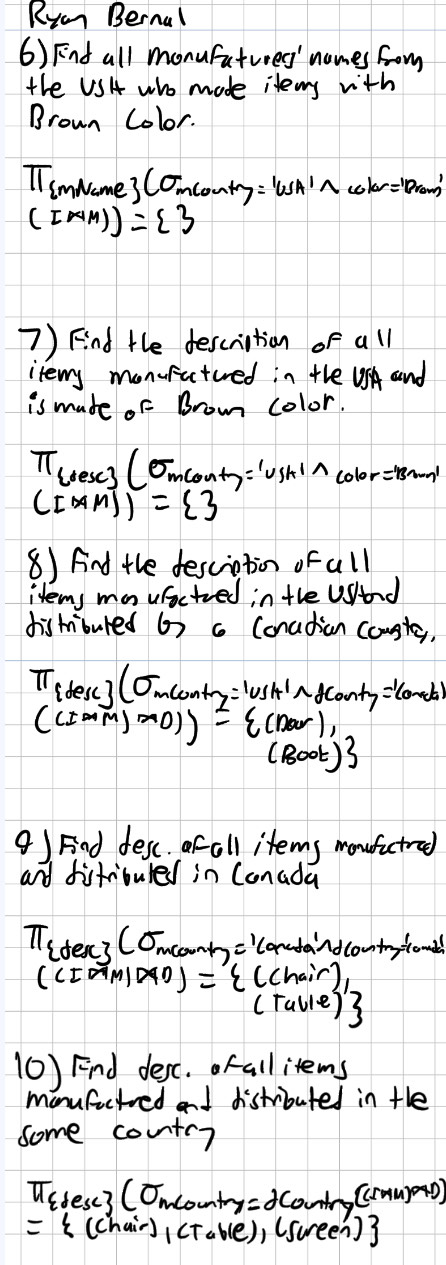 Ryan Bernal
6) Find all manufatures' names from
the USA who made items with
Brown Color.
π{mName}(σmCountry='USA' ∧ color='Brown'
(I⋈M)) = { }
7) Find the description of all
items manufactured in the USA and
is made of Brown Color.
π{desc}(σmCountry='USA' ∧ color='Brown'
(I⋈M)) = {}
8) Find the description of all
items manufactured in the USA and
distributed by a Canadian
π{desc}(σmCountry='USA' ∧ dCounty='Canada')
((I⋈M)⋈D)) = {(Door),
(Boot)}
9) Find desc. of all items manufactred
and distributed in Canada
π{desc}(σmcountry='Canada' ∧ dcountry='Canada'
((I⋈M)⋈D) = {(Chair),
(Table)}
10) Find desc. of all items
manufactred and distributed in the
same country
π{desc}(σmCountry=dCountry((I⋈M)⋈D)
= {(Chair), (Table), (Screen)}